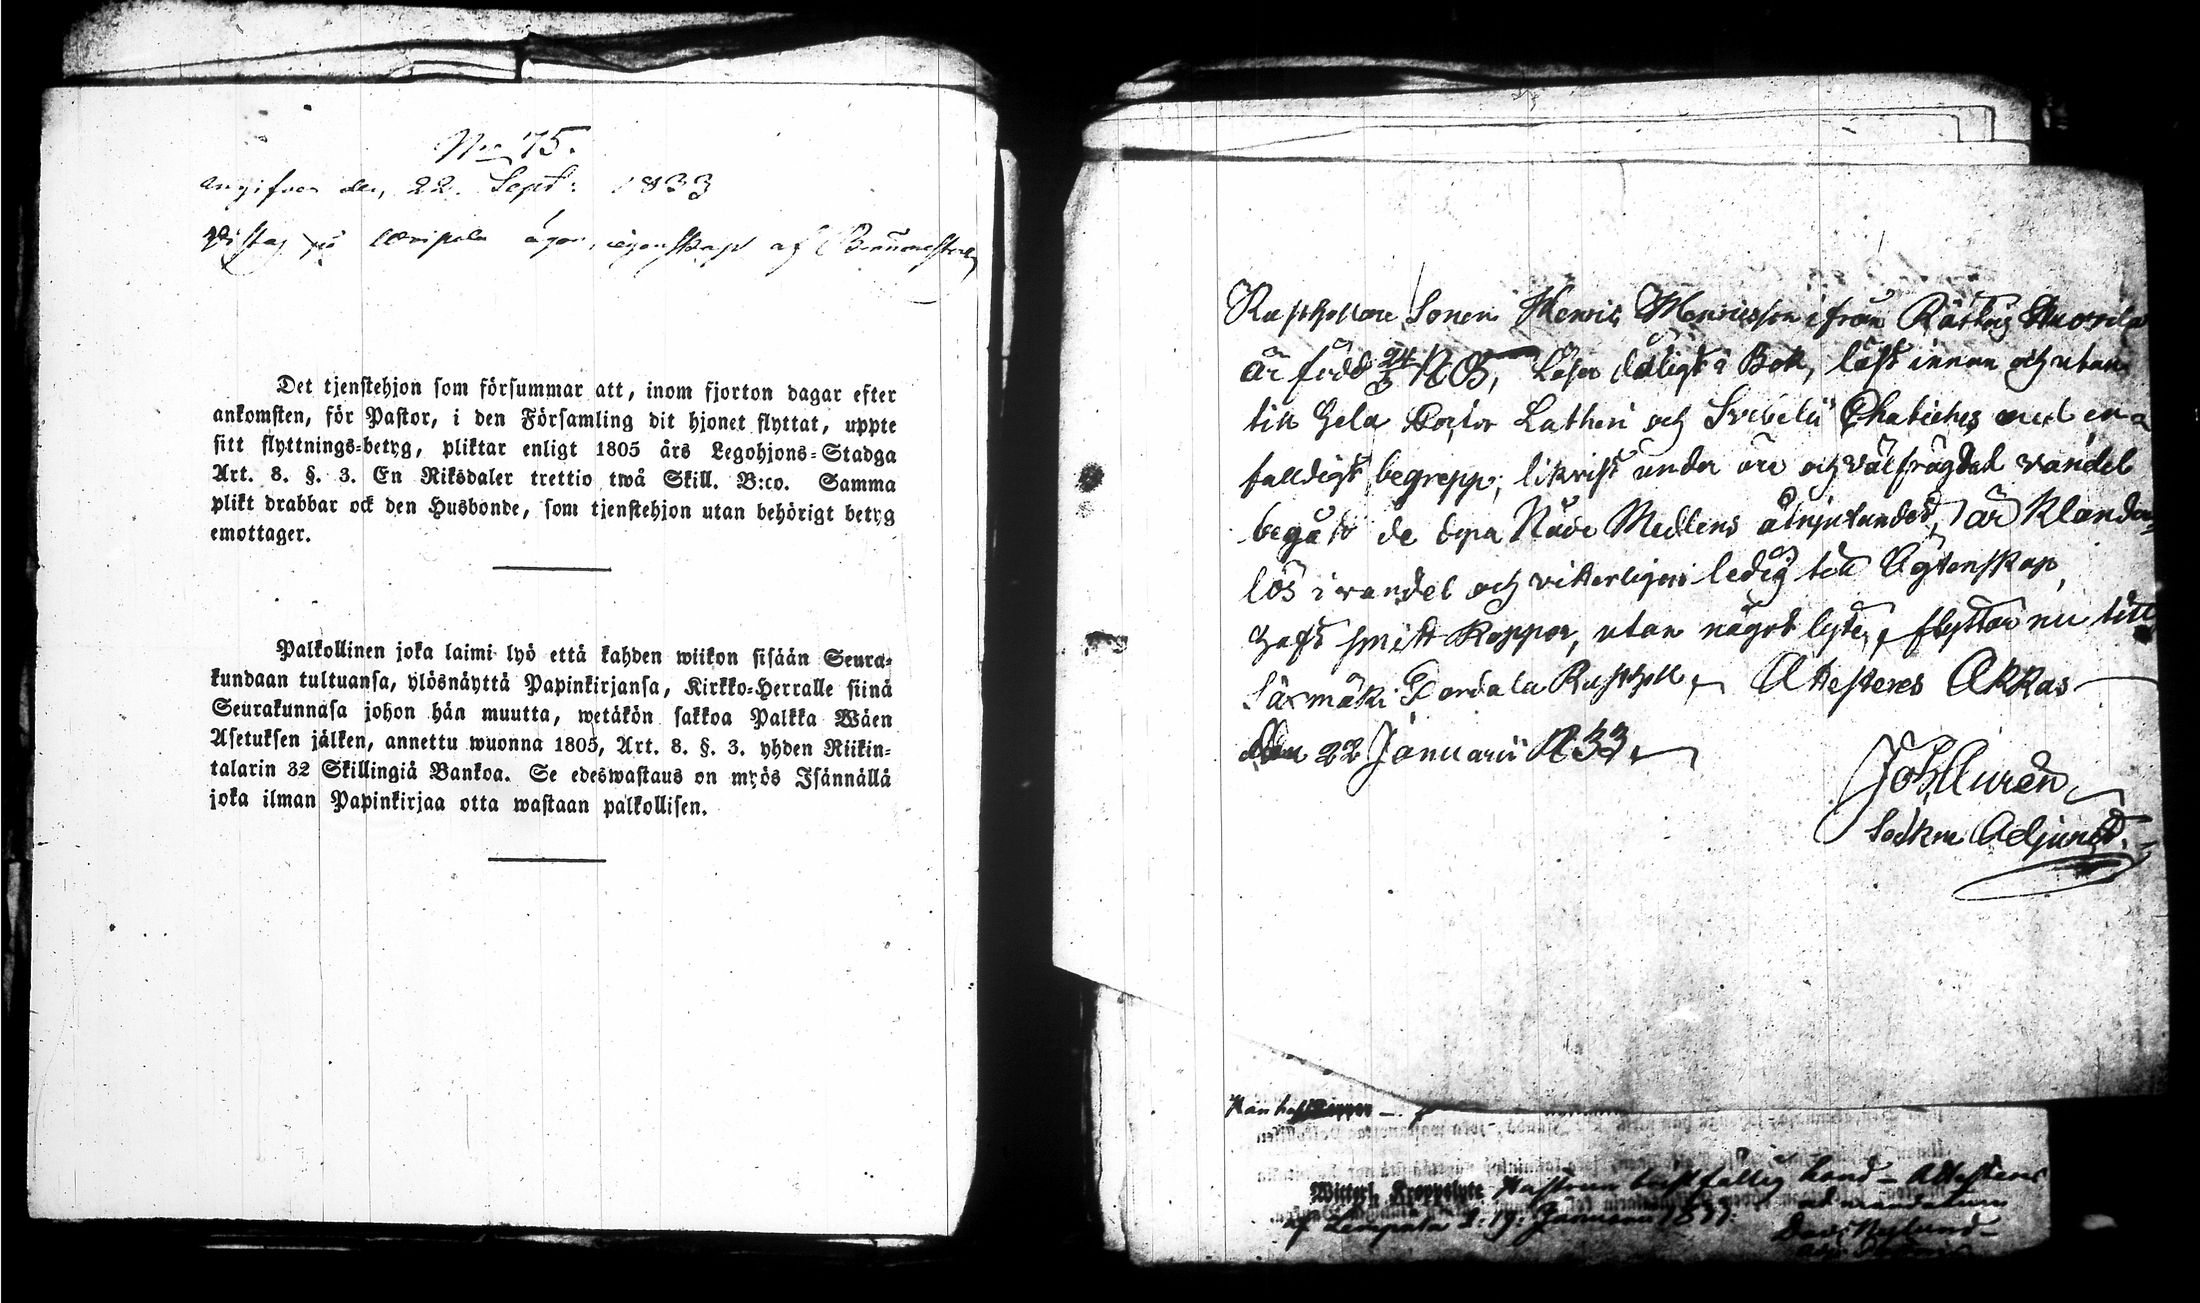 No 75.
angifven den 22. Sept: 1833
på ägor, egenskap af
Det tjenstehjon som försummar att, inom fjorton dagar efter
ankomsten, för Pastor, i den Församling dit hjonet flyttat, uppte
sitt flyttnings-betyg, pliktar enligt 1805 års Legohjons-Stadga
Art. 8. §. 3. En Riksdaler trettio twå Skill. B:co. Samma
plikt drabbar ock den Husbonde, som tjenstehjon utan behörigt betyg
emottager.
Palkollinen joka laimi lyö että kahden wiikon sisään Seura-
kundaan tultuansa, ylösnäyttä Papinkirjansa, Kirkko-Herralle siinä
Seurakunnasa johon hän muutta, wetäkön sakkoa Palkka Wäen
Asetuksen jälken, annettu wuonna 1805, Art. 8. §. 3. yhden Riikin-
talarin 32 Skillingiä Bankoa. Se edeswastaus on myös Isännällä
joka ilman Papinkirjaa otta wastaan palkollisen.
Rusthollare Sonen Henric Henricsson ifrån
är född 24/3 Läser dåligt i Bok, läst innan och utan
till hela Doctor Lutheri och Svebelii med en
falldigt begrepp; likvist under äre och välfrägdad vandel
begådt de dyra Nåde Medlens åtnjutandes, är Klander
lös i vandel och vitterligen ledig till Ägtenskap,
haft Koppor, utan något lyte, flyttar nu till
Säxmäki Rusthåll, Attesteres Akkas
den 22 Januarii 1833.
Joh. Auren
Sockne Adjunct.
Han haft Koppor
Witterl. Kroppslyte bristfällig hand - Attesteras
af Lempäla d: 19: Januari 1833. ad mandatum